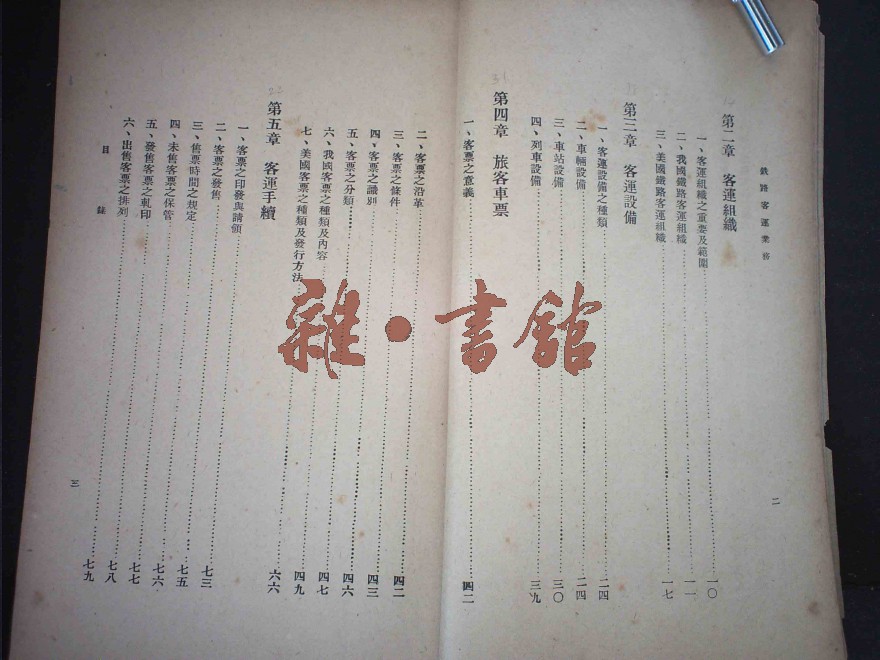 鐵路客運業務
第二章 客運組織
一、客運組織之重要及範圍 一〇
二、我國鐵路客運組織 一一
三、美國鐵路客運組織 一七
第三章 客運設備
一、客運設備之種類 二四
二、車輛設備 二四
三、車站設備 三〇
四、列車設備 三九
第四章 旅客車票
一、客票之意義 四二
二
二、客票之沿革 四二
三、客票之條件 四三
四、客票之識別
五、客票之分類 四六
六、我國客票之種類及內容 四七
七、美國客票之種類及發行方法 四九
第五章 客運手續 六六
一、客票之印發與請領
二、客票之發售 七三
三、售票時間之規定 七五
四、未售客票之保管 七六
五、發售客票之軋印 七七
六、出售客票之排列 七八
七九
目錄
三
雜·書館